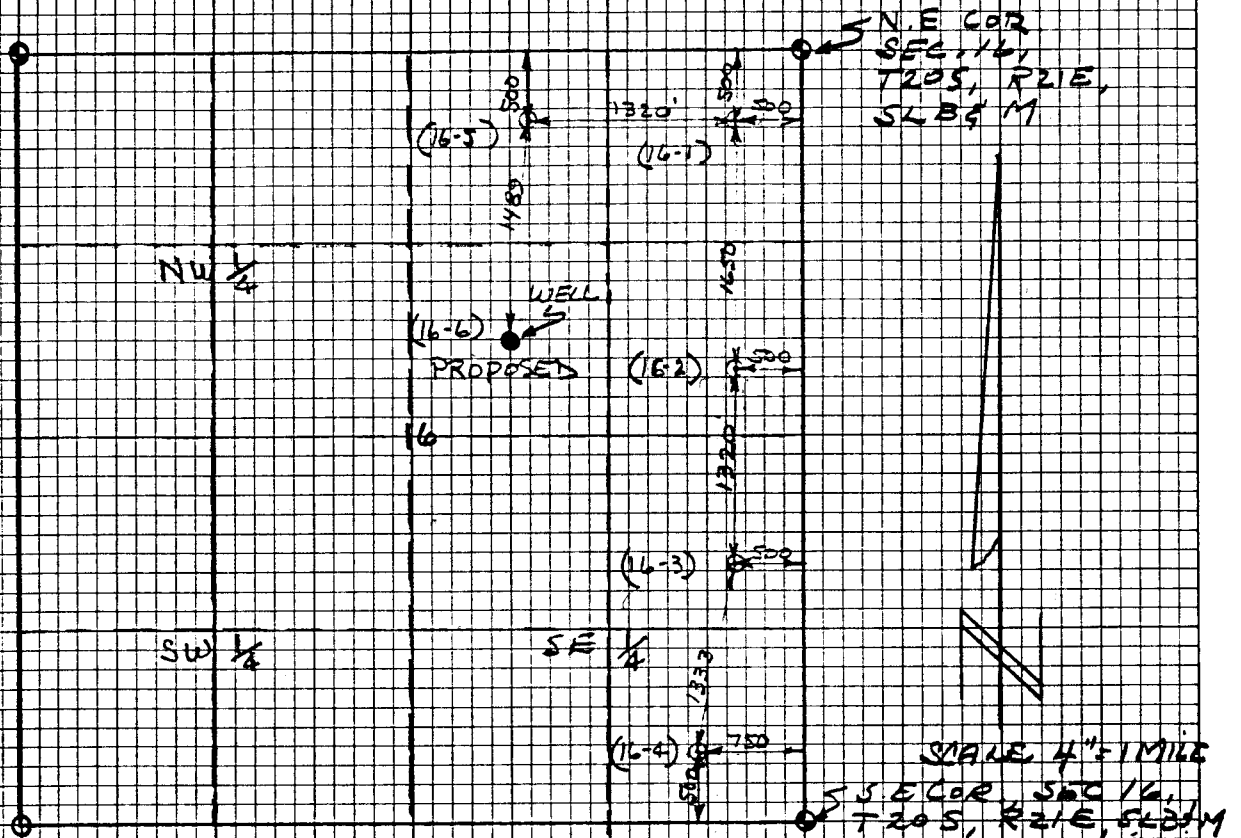 N.E COR
SEC. 16,
T20S, R21E,
SLB & M
500
500
1320'
500
(16-5)
(16-1)
1489
1650
NW 1/4
WELL
(16-6)
PROPOSED
(16-2)
500
16
1320'
(16-3)
500
SW 1/4
SE 1/4
1333
(16-4)
750
500
SCALE 4"=1 MILE
S E COR, SEC 16,
T20S, R21E, SLB&M